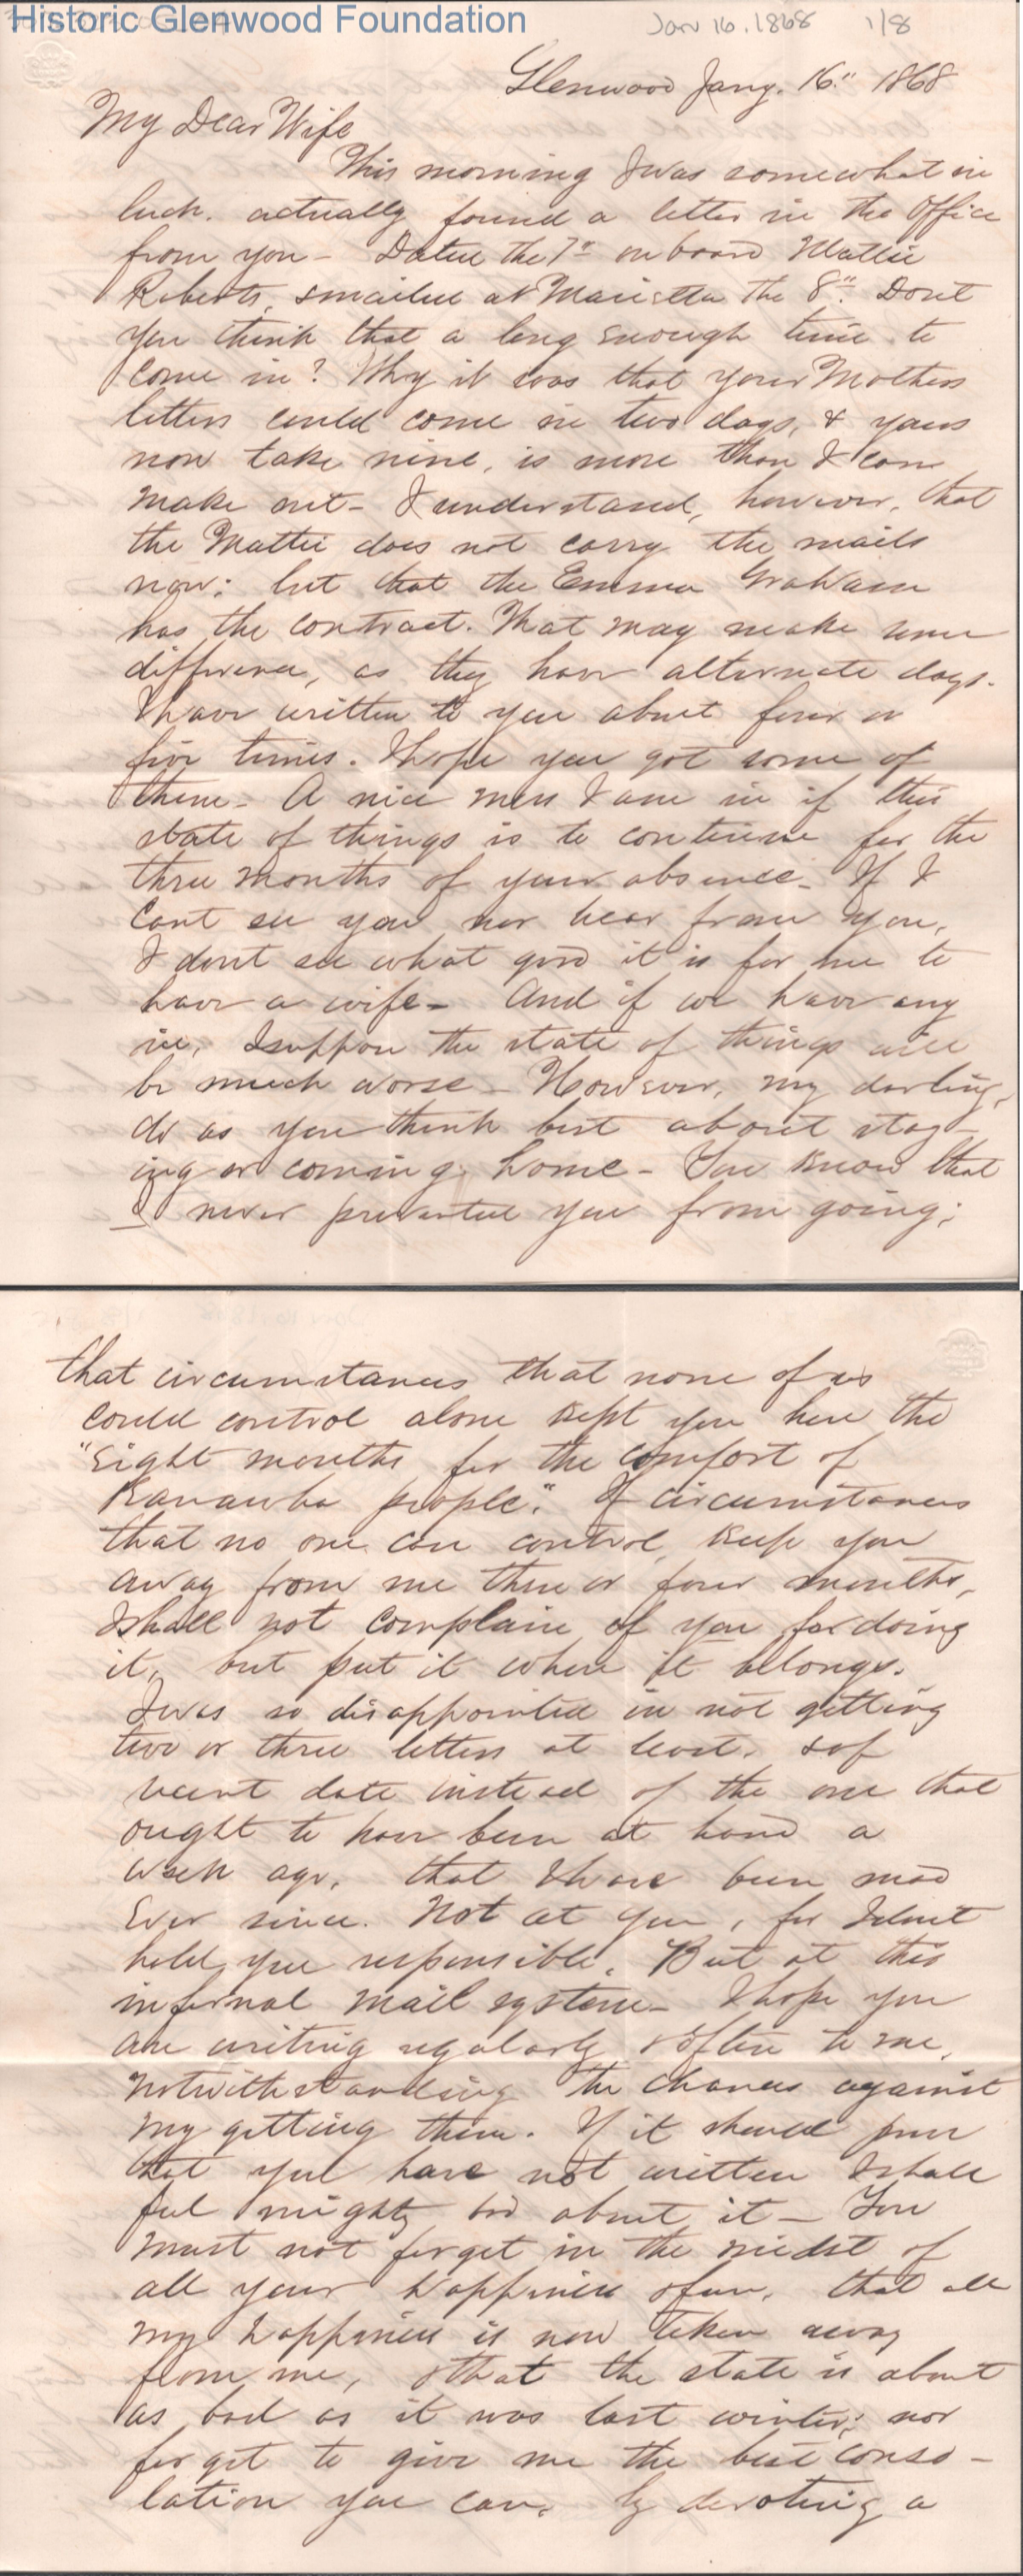 Historic Glenwood Foundation
Jan 16, 1868 1/8
Glenwood Jany. 16" 1868
My Dear Wife
This morning I was somewhat in
luck. actually found a letter in the office
from you - Dated the 7" on board Mattie
Roberts, & mailed at Marietta the 8". Dont
you think that a long enough time to
come in? Why it was that your Mothers
letters could come in two days, & yours
now take nine, is more than I can
make out - I understand, however, that
the Mattie does not carry the mails
now: but that the Emma Graham
has the contract. That may make some
difference, as they have alternate days.
I have written to you about four or
five times. I hope you got some of
them - A nice mess I am in if this
state of things is to continue for the
three months of your absence - If I
cant see you nor hear from you,
I dont see what good it is for me to
have a wife - And if we have any
ice, I suppose the state of things will
be much worse - However, my darling,
do as you think best about stay-
ing or coming home - You know that
I never prevented you from going;
that circumstances that none of us
could control alone kept you here the
"Eight months for the comfort of
Kanawha people". If circumstances
that no one can control, keep you
away from me three or four months,
I shall not complain of you for doing
it, but put it where it belongs.
I was so disappointed in not getting
two or three letters at least, & of
recent date instead of the one that
ought to have been at hand a
week ago, that I have been mad
Ever since. Not at you, for I dont
hold you responsible. But at this
infernal mail system - I hope you
are writing regularly & often to me,
notwithstanding the chances against
my getting them. If it should prove
that you have not written I shall
feel mighty bad about it - You
must not forget in the midst of
all your happiness & fun, that all
my happiness is now taken away
from me, & that the state is about
as bad as it was last winter; nor
forget to give me the best conso-
lation you can, by devoting a